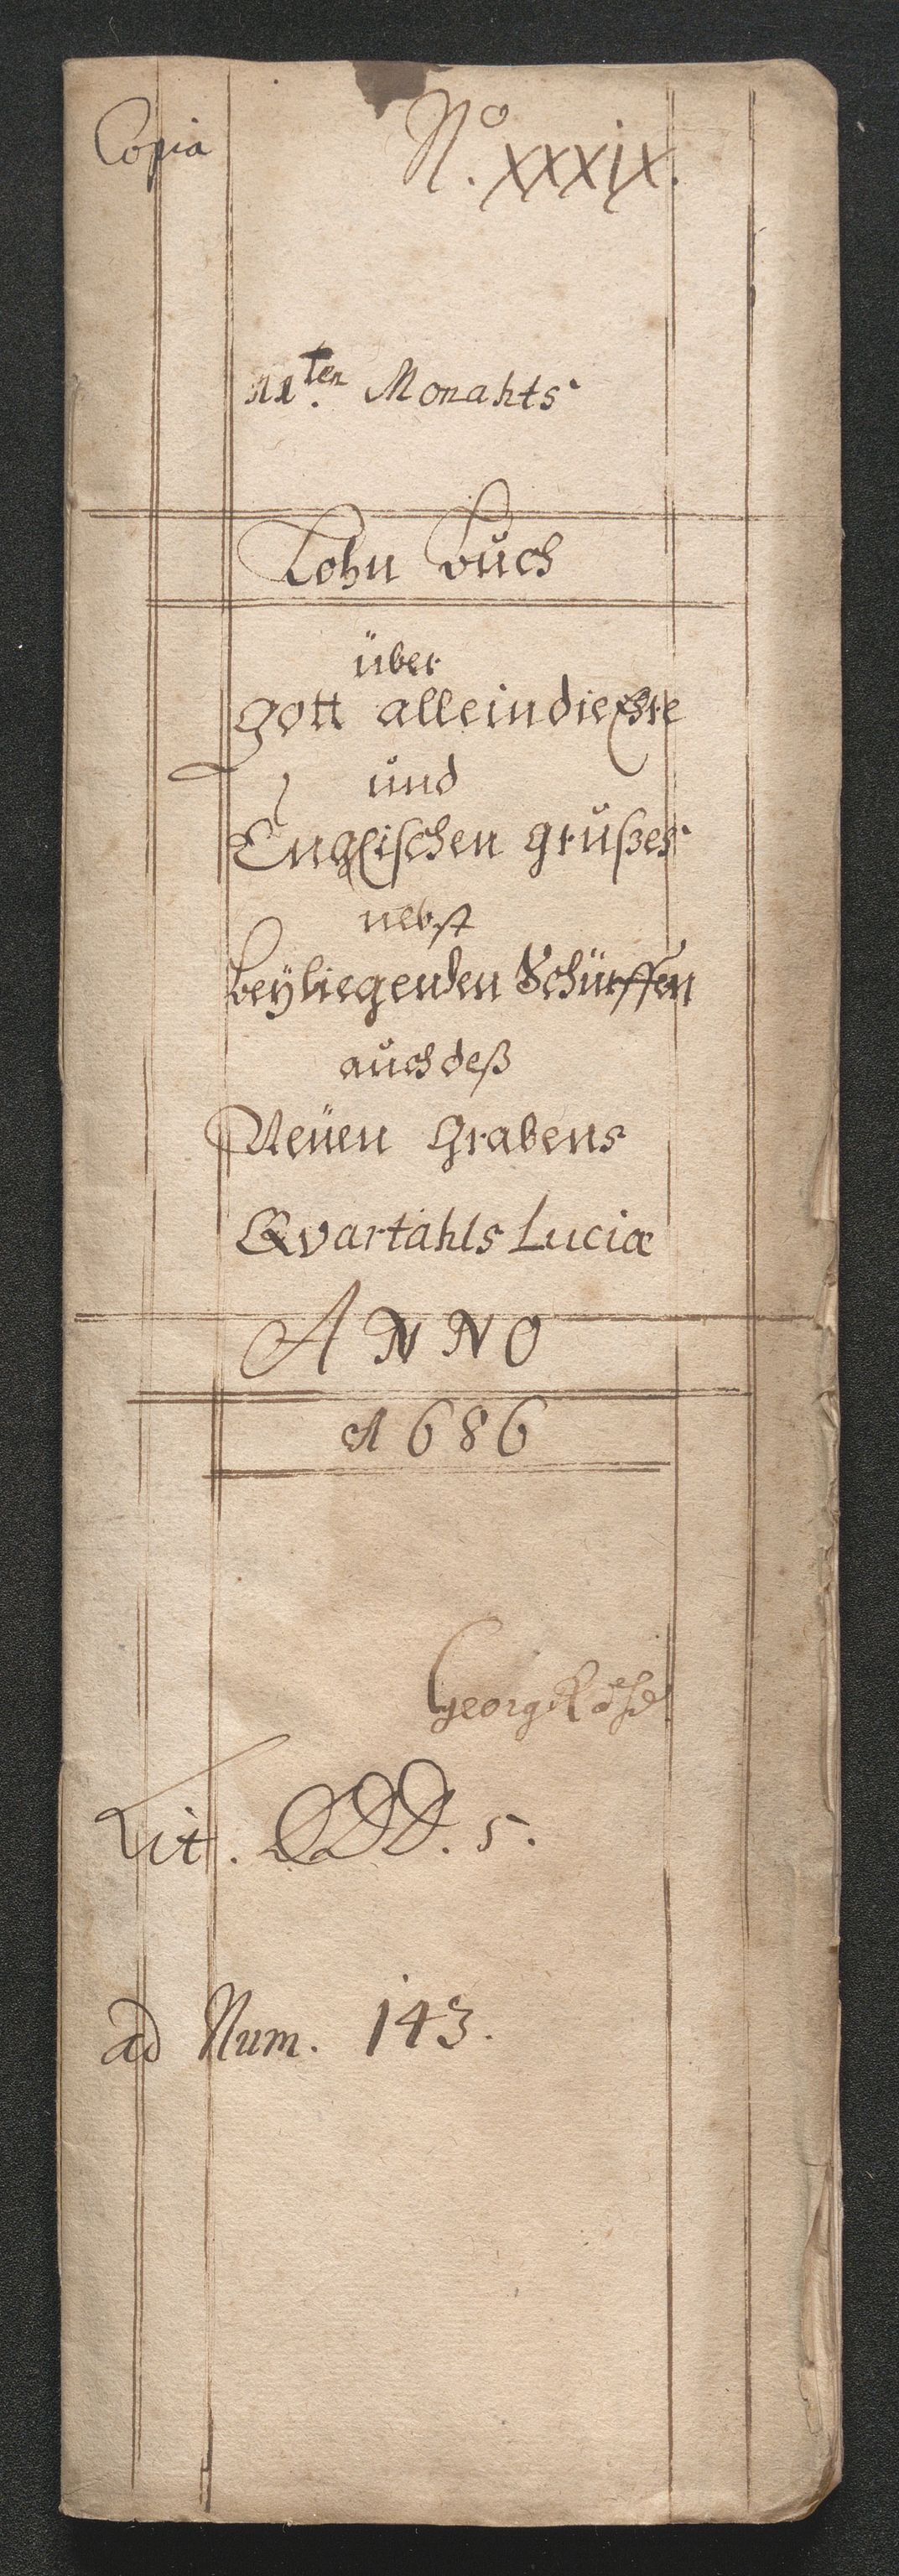 Copia
No. XXXIX.
11ten Monahts
Lohn Buch
über
Gott allein die Ehre
und
Englischen Grußes
nebst
beÿliegenden Schürffen
auch deß
Neüen Grabens
Qvartahls Luciæ
ANNO
1686
Georg
Lit. DDD. 5.
ad Num. 143.